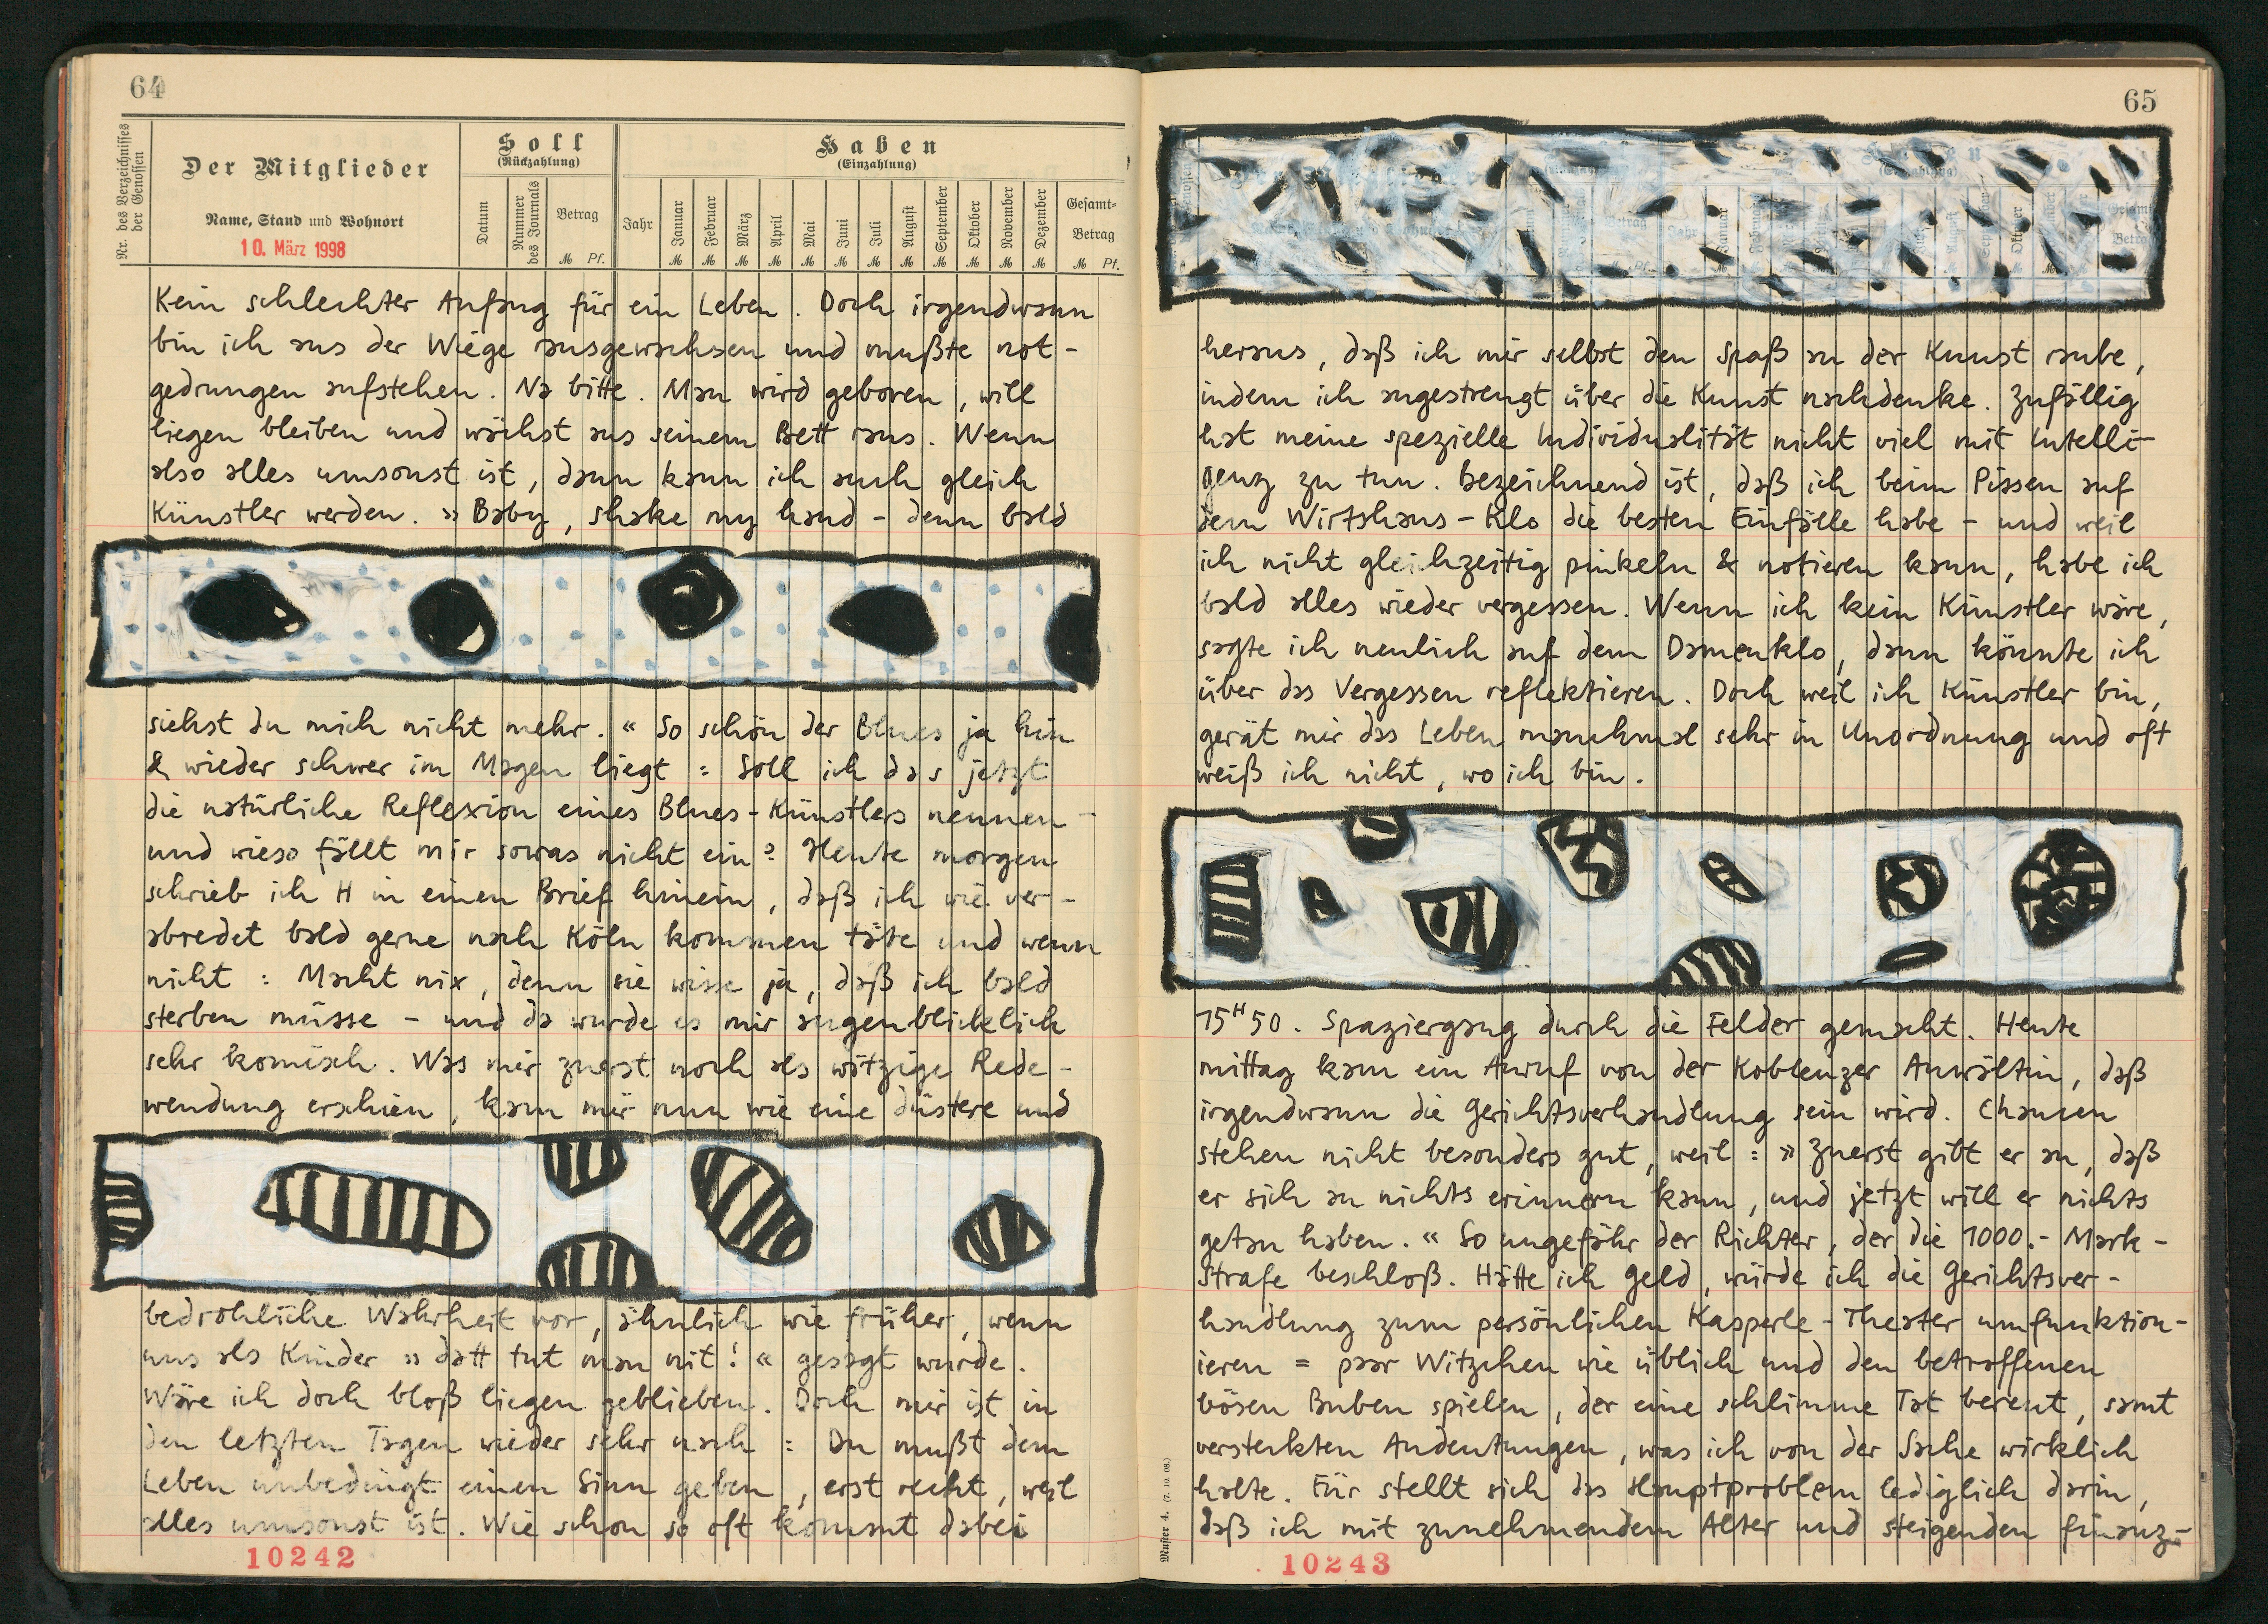 64
Nr. des Verzeichnisses der Genossen
Der Mitglieder
Name, Stand und Wohnort
10. März 1998
Soll
(Rückzahlung)
Datum
Nummer des Journals
Betrag
M Pf.
Haben
(Einzahlung)
Jahr
Januar
Februar
März
April
Mai
Juni
Juli
August
September
Oktober
November
Dezember
Gesamt-
Betrag
M M M M M M M M M M M M M Pf.
Kein schlechter Anfang für ein Leben. Doch irgendwann
bin ich aus der Wiege rausgewachsen und mußte not-
gedrungen aufstehen. Na bitte. Man wird geboren, will
liegen bleiben und wächst aus seinem Bett raus. Wenn
also alles umsonst ist, dann kann ich auch gleich
Künstler werden. »Baby, shake my hand – denn bald
siehst du mich nicht mehr.« So schön der Blues ja hin
& wieder schwer im Magen liegt: Soll ich das jetzt
die natürliche Reflexion eines Blues-Künstlers nennen –
und wieso fällt mir sowas nicht ein? Heute morgen
schrieb ich H in einen Brief hinein, daß ich wie ver-
abredet bald gerne nach Köln kommen täte und wenn
nicht: Macht nix, denn sie wisse ja, daß ich bald
sterben müsse – und da wurde es mir augenblicklich
sehr komisch. Was mir zuerst noch als witzige Rede-
wendung erschien, kam mir nun wie eine düstere und
bedrohliche Wahrheit vor, ähnlich wie früher, wenn
uns als Kinder »datt tut man nit!« gesagt wurde.
Wäre ich doch bloß liegen geblieben. Doch mir ist in
den letzten Tagen wieder sehr nach: Du mußt dem
Leben unbedingt einen Sinn geben, erst recht, weil
alles umsonst ist. Wie schon so oft kommt dabei
10242
65
heraus, daß ich mir selbst den Spaß an der Kunst raube,
indem ich angestrengt über die Kunst nachdenke. Zufällig
hat meine spezielle Individualität nicht viel mit Intelli-
genz zu tun. Bezeichnend ist, daß ich beim Pissen auf
dem Wirtshaus-Klo die besten Einfälle habe – und weil
ich nicht gleichzeitig pinkeln & notieren kann, habe ich
bald alles wieder vergessen. Wenn ich kein Künstler wäre,
sagte ich neulich auf dem Damenklo, dann könnte ich
über das Vergessen reflektieren. Doch weil ich Künstler bin,
gerät mir das Leben manchmal sehr in Unordnung und oft
weiß ich nicht, wo ich bin.
15H50. Spaziergang durch die Felder gemacht. Heute
mittag kam ein Anruf von der Koblenzer Anwältin, daß
irgendwann die Gerichtsverhandlung sein wird. Chancen
stehen nicht besonders gut, weil: »Zuerst gibt er an, daß
er sich an nichts erinnern kann, und jetzt will er nichts
getan haben.« So ungefähr der Richter, der die 1000.- Mark-
Strafe beschloß. Hätte ich Geld, würde ich die Gerichtsver-
handlung zum persönlichen Kasperle-Theater umfunktion-
ieren = paar Witzchen wie üblich und den betroffenen
bösen Buben spielen, der eine schlimme Tat bereut, samt
versteckten Andeutungen, was ich von der Sache wirklich
halte. Für stellt sich das Hauptproblem lediglich darin,
daß ich mit zunehmendem Alter und steigenden finanz-
Muster 4. (7. 10. 08.)
10243